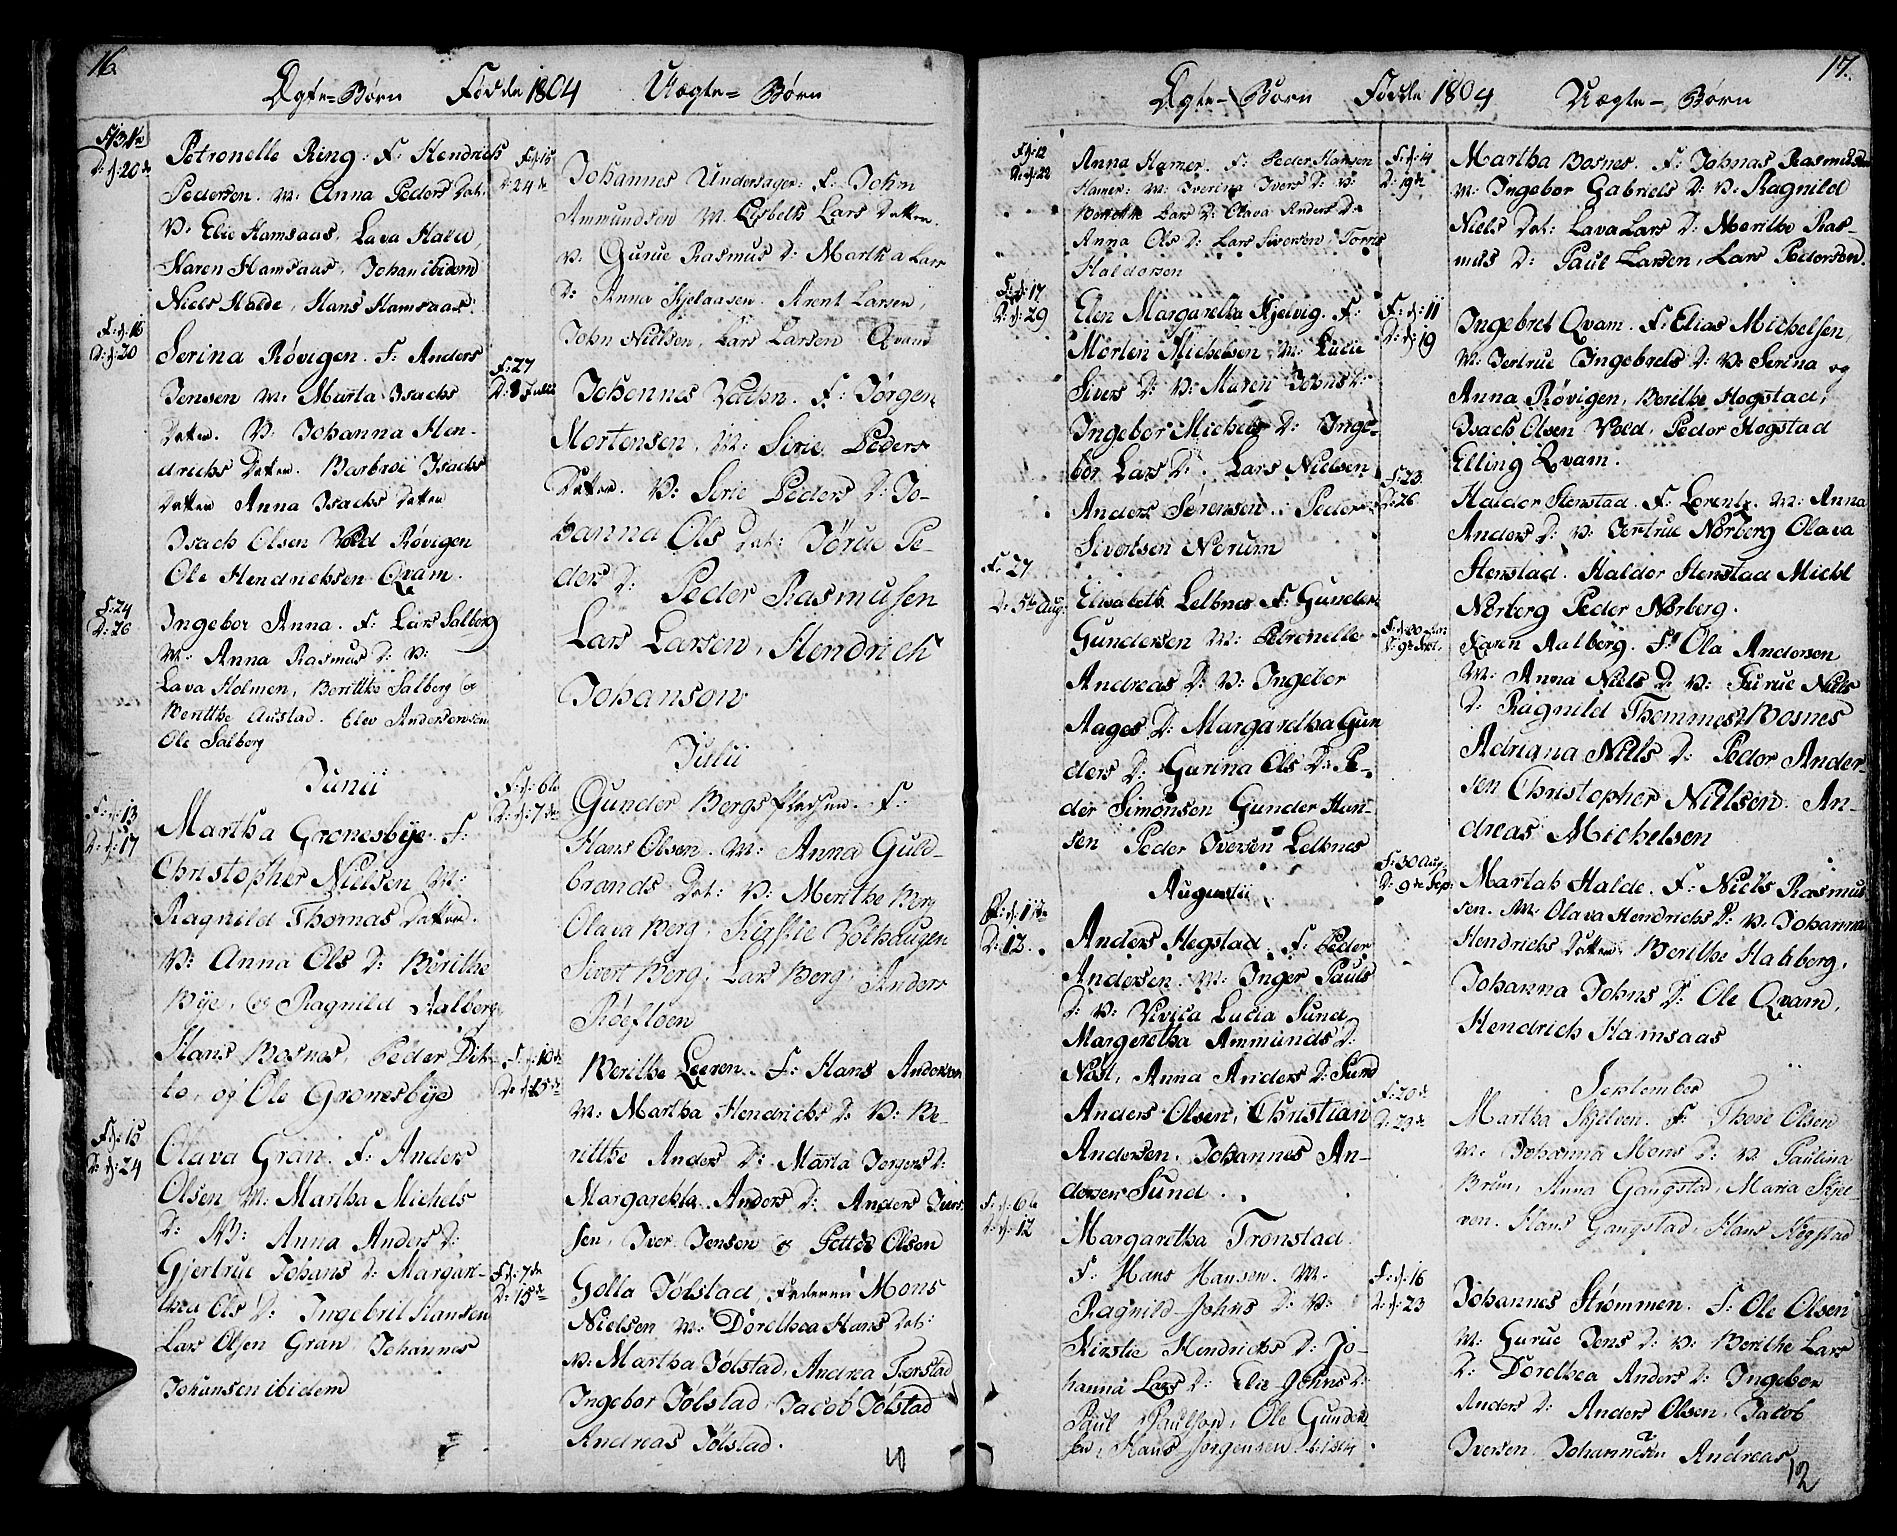 16.
Ægte=Børn Fødde 1804 Uægte= Børn
F: 13 
D: d: 20de
Petronelle Ring: F: Hendrich
Pedersen. M: Anna Peders Dat:
V: Elie Hamsaas, Lava Hald,
Karen Hamsaas, Johan ibidem
Niels Halde, Hans Hamsaas.
F: d: 16
D: d: 20
Serina Røvigen. F: Anders
Jensen M: Marta Isachs
Datter. V: Johanna Hen-
drichs Datter. Barbroe Isachs
Datter Anna Isachs Datter
Isach Olsen Vold Røvigen
Ole Hendrichsen Qvam.
F: 24
D: 26
Ingebor Anna. F: Lars Salberg
M: Anna Rasmus D: V:
Lava Holmen, Beritthe Salberg og
Beritthe Austad. Elev Andersensen
Ole Salberg
Junii
F: d: 13
D: d: 17
Martha Gronesbye. F:
Christopher Nielsen M:
Ragnild Thomas Datter.
V: Anna Ols D: Berithe
Bye, og Ragnild Aalberg
Hans Bosnes, Peder Dit-
to, og Ole Gronesbye
F: d: 15
D: d: 24
Olava Gran. F: Anders
Olsen M: Martha Michels
D: V: Anna Anders D:
Gjertrue Johans D: Margare-
thea Ols D: Ingebril Hansen
Lars Olsen Gran, Johannes
Johansen ibidem
F: d: 15
D: 24de
Johannes Undersager: F: John
Ammundsen M. Lisbeth Lars Datter.
V: Gurue Rasmus D: Martha Lars
D: Anna Hjelaasen. Arent Larsen,
John Nielsen, Lars Larsen Qvam
F: 27
D: 8 Julii
Johannes Vathn. F: Jørgen
Mortensen, M: Sirie Peders
Datter. V: Serie Peders D: Jo-
hanna Ols Dat: Jørue Pe-
ders D: Peder Rasmusen
Lars Larsen, Hendrich
Johansow
Julii
F: d: 6te
D: d: 7de
Gunder Bergs F:
Hans Olsen. M: Anna Guld-
brands Dat: V: Merithe Berg
Olava Berg, Kirstie Volhaugen
Sivert Berg, Lars Berg, Anders
Røefloen
F: d: 10de
D: d: 15de
Berithe Leeren. F: Hans Andersen
M: Martha Hendrichs D: V: Be-
ritthe Anders D: Marta Jergers D:
Margaretha Anders D: Anders Iver-
sen, Iver Jensen & Petter Olsen
F: d: 7de
D: 15de
Golla Jølstad, Faderen Mons
Nielsen M: Dorethea Hans Dat:
V: Martha Jølstad, Andrea Tørstad
Ingebor Jølstad, Jacob Jølstad
Andreas Jølstad.
10
17.
Ægte- Børn Fødde 1804 Uægte- Børn
F: d: 12
D: d: 22
Anna Hamer. F: Peder Hansen
Hamer: M: Iverina Ivers D: V:
Beritthe Lars D: Olava Anders D:
Anna Ols D: Lars Siversen, Torris
Haldorsen
F: d: 17
D: d: 29
Elen Margaretha Hjelvig. F:
Morten Michelsen, M: Lucie
Sivers D: V: Maren Johns D:
Ingebor Michels D: Inge-
bor Lars D: Lars Nielsen
Anders Sørensen. Peder
Sivertsen Norum
F: 27
D: 5te Aug:
Elisabeth Lelknes F: Gunder
Gundersen M: Petronelle
Andreas D: V: Ingebor
Aages D: Margaretha Gun
ders D: Gurina Ols D: Pe-
der Simonsen Gunder Han-
sen Peder Iversen Lelknes
Augustii
D: 12.
Anders Hegstad. F: Peder
Andersen. M: Inger Pauls
D: V: Vivica Lucia Sund
Margeretha Ammunds D:
Nøst, Anna Anders D: Sund
Anders Olsen, Christian
Andersen. Johannes An-
dersen Sund.
F: d: 6te
D: d: 12
Margaretha Tronstad.
F: Hans Hansen. M:
Ragnild Johns D: V:
Kirstie Hendrichs D: Jo-
hanna Lars D: Elie Johns D:
Paul Paulsen, Ole Gunder-
sen, Hans Jørgensen
F: d: 14
D: 19de
Martha Bosnes. F: Johnas Rasmusen
M: Ingebor Gabriels D: V: Ragnild
Niels Dat: Lava Lars D: Merithe Ras-
mus D: Paul Larsen, Lars Pedersen.
F: d: 11
D: d: 19
Ingebret Qvam. F: Elias Michelsen
M: Jertrue Ingebrets D: V: Serina og
Anna Røvigen, Berithe Hogstad,
Isach Olsen Vold, Peder Hogstad
Elling Qvam.
F: 23
D: 26
Haldor Stenstad. F: Lorentz. M: Anna
Anders D: V: Jertrue Norberg Olava
Stenstad. Haldor Stenstad Michl
Norberg Peder Norberg.
F: d: 30
D: 9de Sept.
Karen Aalberg. F: Ola Andersen
M: Anna Niels D: V: Gurue Niels
D: Ragnild Thommes Bosnes
Adriana Niels D: Peder Ander-
sen Christopher Nielsen. An-
dreas Michelsen
F: 30 Aug:
D: 9de Sep:
Martah Halde. F: Niels Rasmus
sen. M: Olava Hendrichs D: V: Johanna
Hendrichs Datter. Berithe Halsberg,
Johanna Johns D: Ole Qvam,
Hendrich Hamsaas
September
F: 20de
D: 23de
Martha Skjelven. F: Thore Olsen
M: Johanna Mons D: V: Paulina
Brun, Anna Gangstad, Maria Skjel
ven. Hans Gangstad, Hans Hegstad
F: d: 16
D: d: 23
Johannes Strømmen. F: Ole Olsen
M: Gurue Jens D: V: Berithe Lars
D: Dorethea Anders D: Ingebor
Anders D: Anders Olsen, Jacob
Iversen Johannesen Andreas
12